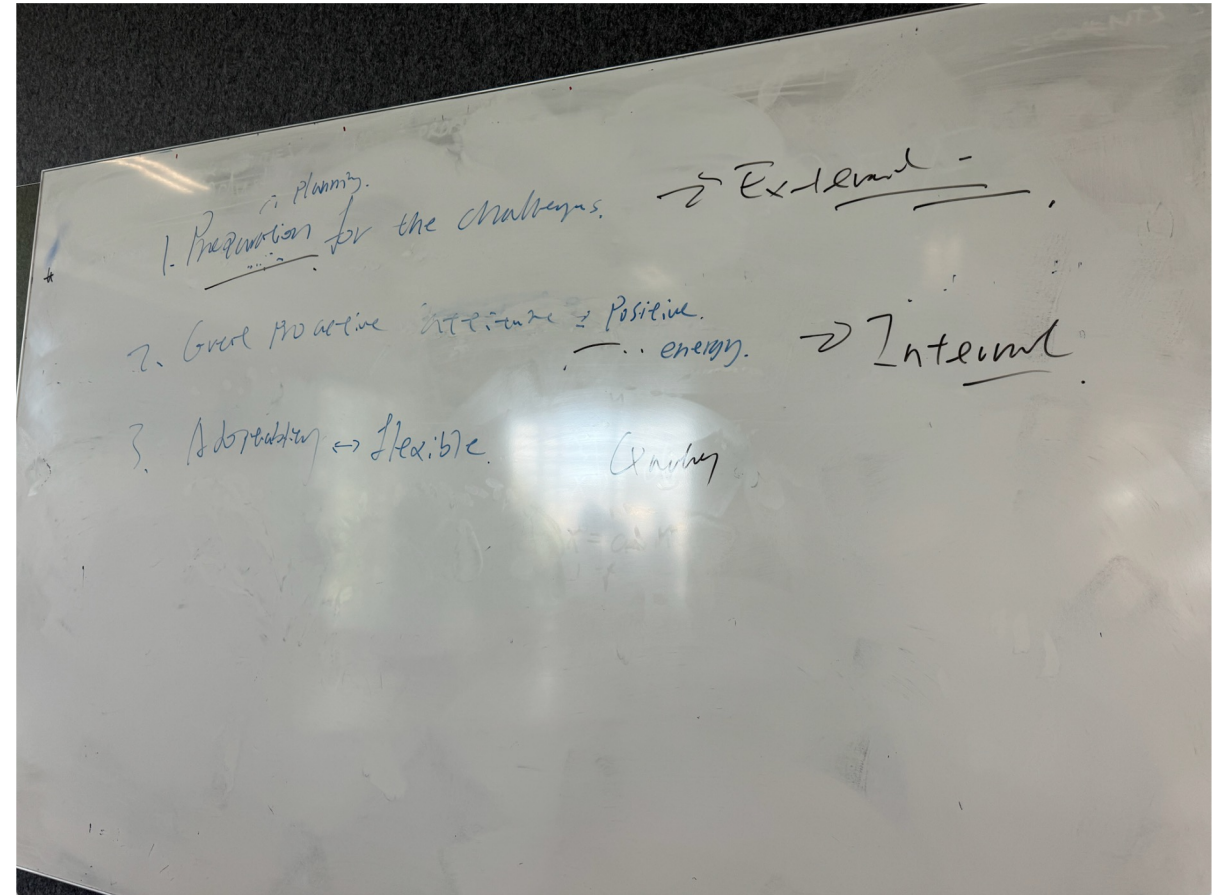 : Planning.
1. Preparation for the challenges. → External -
2. Great proactive attitude : Positive.
energy. → Internal
3. Adaptability ↔ flexible.